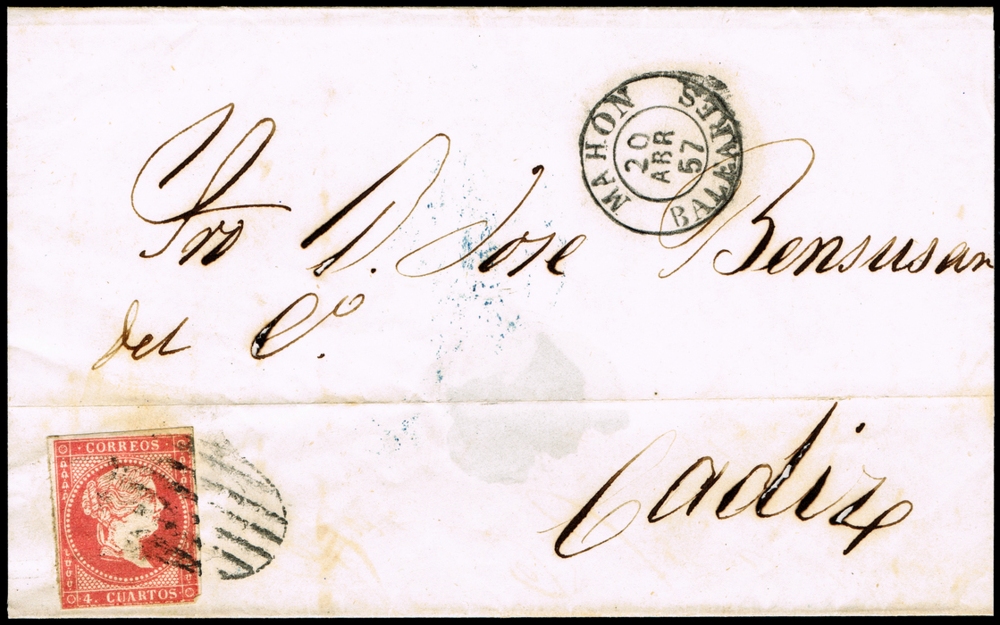 MAHON
20
ABR
57
BALEARES
Sr D. Jose Bensusan
del C.o
Cadiz
CORREOS
4. CUARTOS